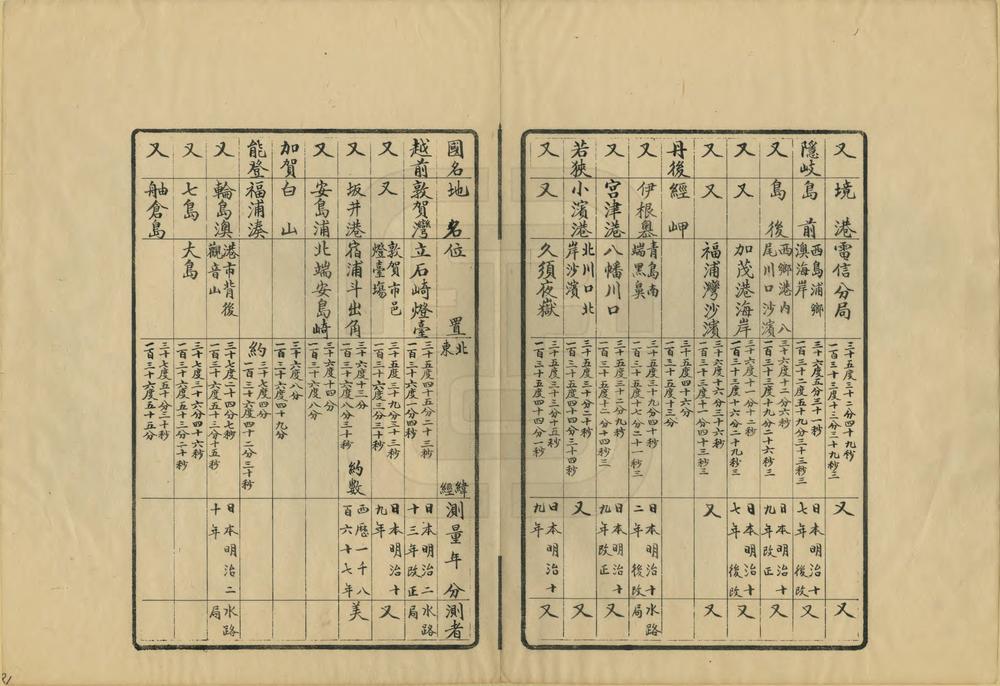 又 境港 電信分局 三十五度三十二分四十九秒 一百三十三度十三分三十九秒三 又 又
隱岐 島前 西島浦鄉澳海岸 三十六度五分三十一秒 一百三十二度五十九分三十三秒三 日本明治十七年後改 又
又 島後 西鄉港內八尾川口沙濱 三十六度十二分六秒 一百三十三度十九分二十六秒三 日本明治十九年改正 又
又 又 加茂港海岸 三十六度十一分十二秒 一百三十三度十六分二十九秒三 日本明治十七年後改 又
又 又 福浦灣沙濱 三十六度十六分三十六秒 一百三十三度十一分四十三秒三 又 又
丹後 經岬 三十五度四十六分 一百三十五度十三分
伊根㠀 青島南端黑鼻 三十五度三十九分四十秒 一百三十五度十七分二十一秒三 日本明治十二年後改 水路局
宮津港 八幡川口 三十五度三十二分九秒 一百三十五度十二分十四秒三 日本明治十九年改正 又
若狹 小濱港 北川口北岸沙濱 三十五度三十分二十秒 一百三十五度四十四分三十四秒 又 又
又 又 久須夜嶽 三十五度三十三分二十五秒 一百三十五度四十四分一秒 日本明治十九年 又
國名 地名 位置 北緯 東經 測量年分 測者
越前 敦賀灣 立石崎燈臺 三十五度四十五分二十三秒 一百三十六度一分四秒 日本明治二十三年改正 水路局
又 又 敦賀市邑燈臺塲 三十五度三十九分三十三秒 一百三十六度三分三十秒 日本明治十九年 又
又 坂井港 宿浦斗出角 三十六度十三分 一百三十六度八分三十秒 約數 西歷一千八百六十七年 美
又 安島浦 北端安島崎 三十六度十四分 一百三十六度八分
加賀 白山 三十六度八分 一百三十六度四十九分
能登 福浦湊 約 三十七度四分 一百三十六度四十二分三十秒
又 輪島澳 港市背後觀音山 三十七度二十四分七秒 一百三十六度五十三分十五秒 日本明治二十年 水路局
又 七島 大島 三十七度三十六分四十六秒 一百三十六度五十三分二十秒
又 舳倉島 三十七度五十分二十秒 一百三十六度五十五分